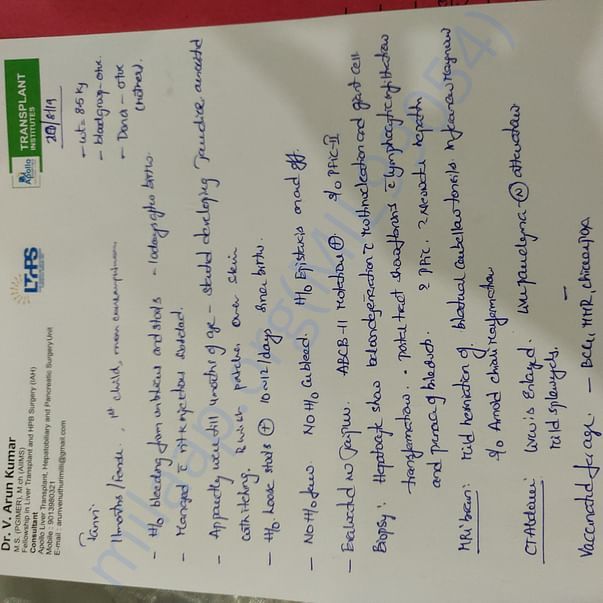 Dr. V. Arun Kumar
M.S. (PGIMER), M.ch (AIIMS)
Fellowship in Liver Transplant and HPB Surgery (IAH)
Consultant
Apollo Liver Transplant, Hepatobiliary and Pancreatic Surgery Unit
Mobile : 9013980321
LTHPS
Apollo
TRANSPLANT
INSTITUTES
20/8/19
Tanvi
11 months / Female, 1st child,
- wt = 8.5 kg
- Blood group - O+ve
- Donor - O+ve
(mother).
- H/o bleeding from umbilicus and stools - 10 days after birth.
Managed c vit k injection
- Apparently well till months of age - started developing jaundice associated
with itching. patches over skin
- H/o loose stools + 10 to 12/days since birth.
- No H/o fever. No H/o GI bleed. H/o Epistaxis on and off.
- Evaluated in Jaipur. ABCB-11 mutation +. S/o PFIC-II
Biopsy: Hepatocyte show c multinucleation and giant cell
transformation. Portal tract show fibrosis c lymphocytic infiltration
and of bile duct. ? PFIC. ? Neonatal hepatitis
MRI brain: Mild herniation of bilateral cerebellar tonsils in foramen magnum
S/o Arnold chiari malformation
CT Abdomen: Liver is Enlarged. Liver parenchyma - N attenuation
Mild splenomegaly.
Vaccinated for age. - BCG, MMR, chickenpox
milaap.org